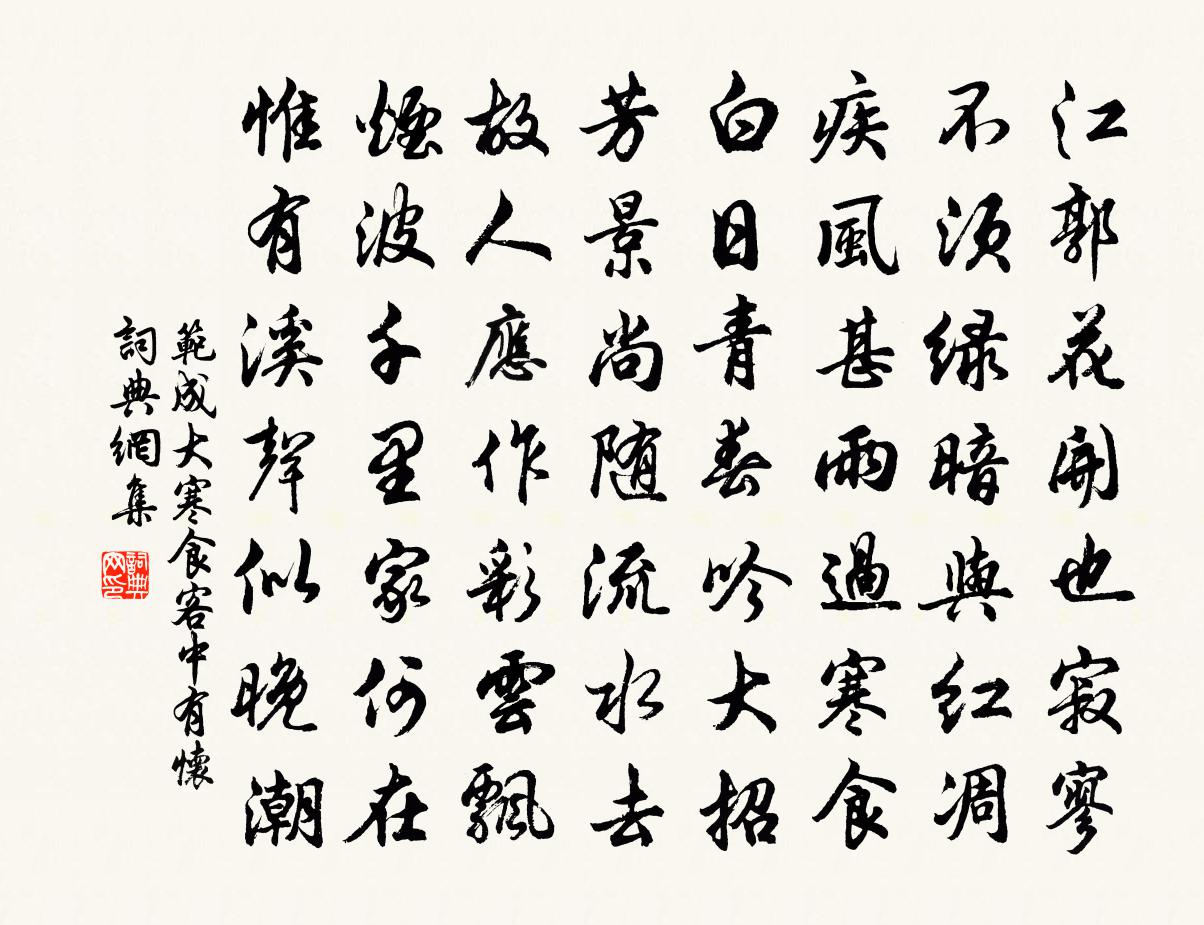 江郭花開也寂寥
不須緑暗與紅凋
疾風甚雨過寒食
白日青春吟大招
芳景尚随流水去
故人應作彩雲飄
煙波千里家何在
惟有溪聲似晚潮
範成大寒食客中有懷
詞典網集
詞典网印